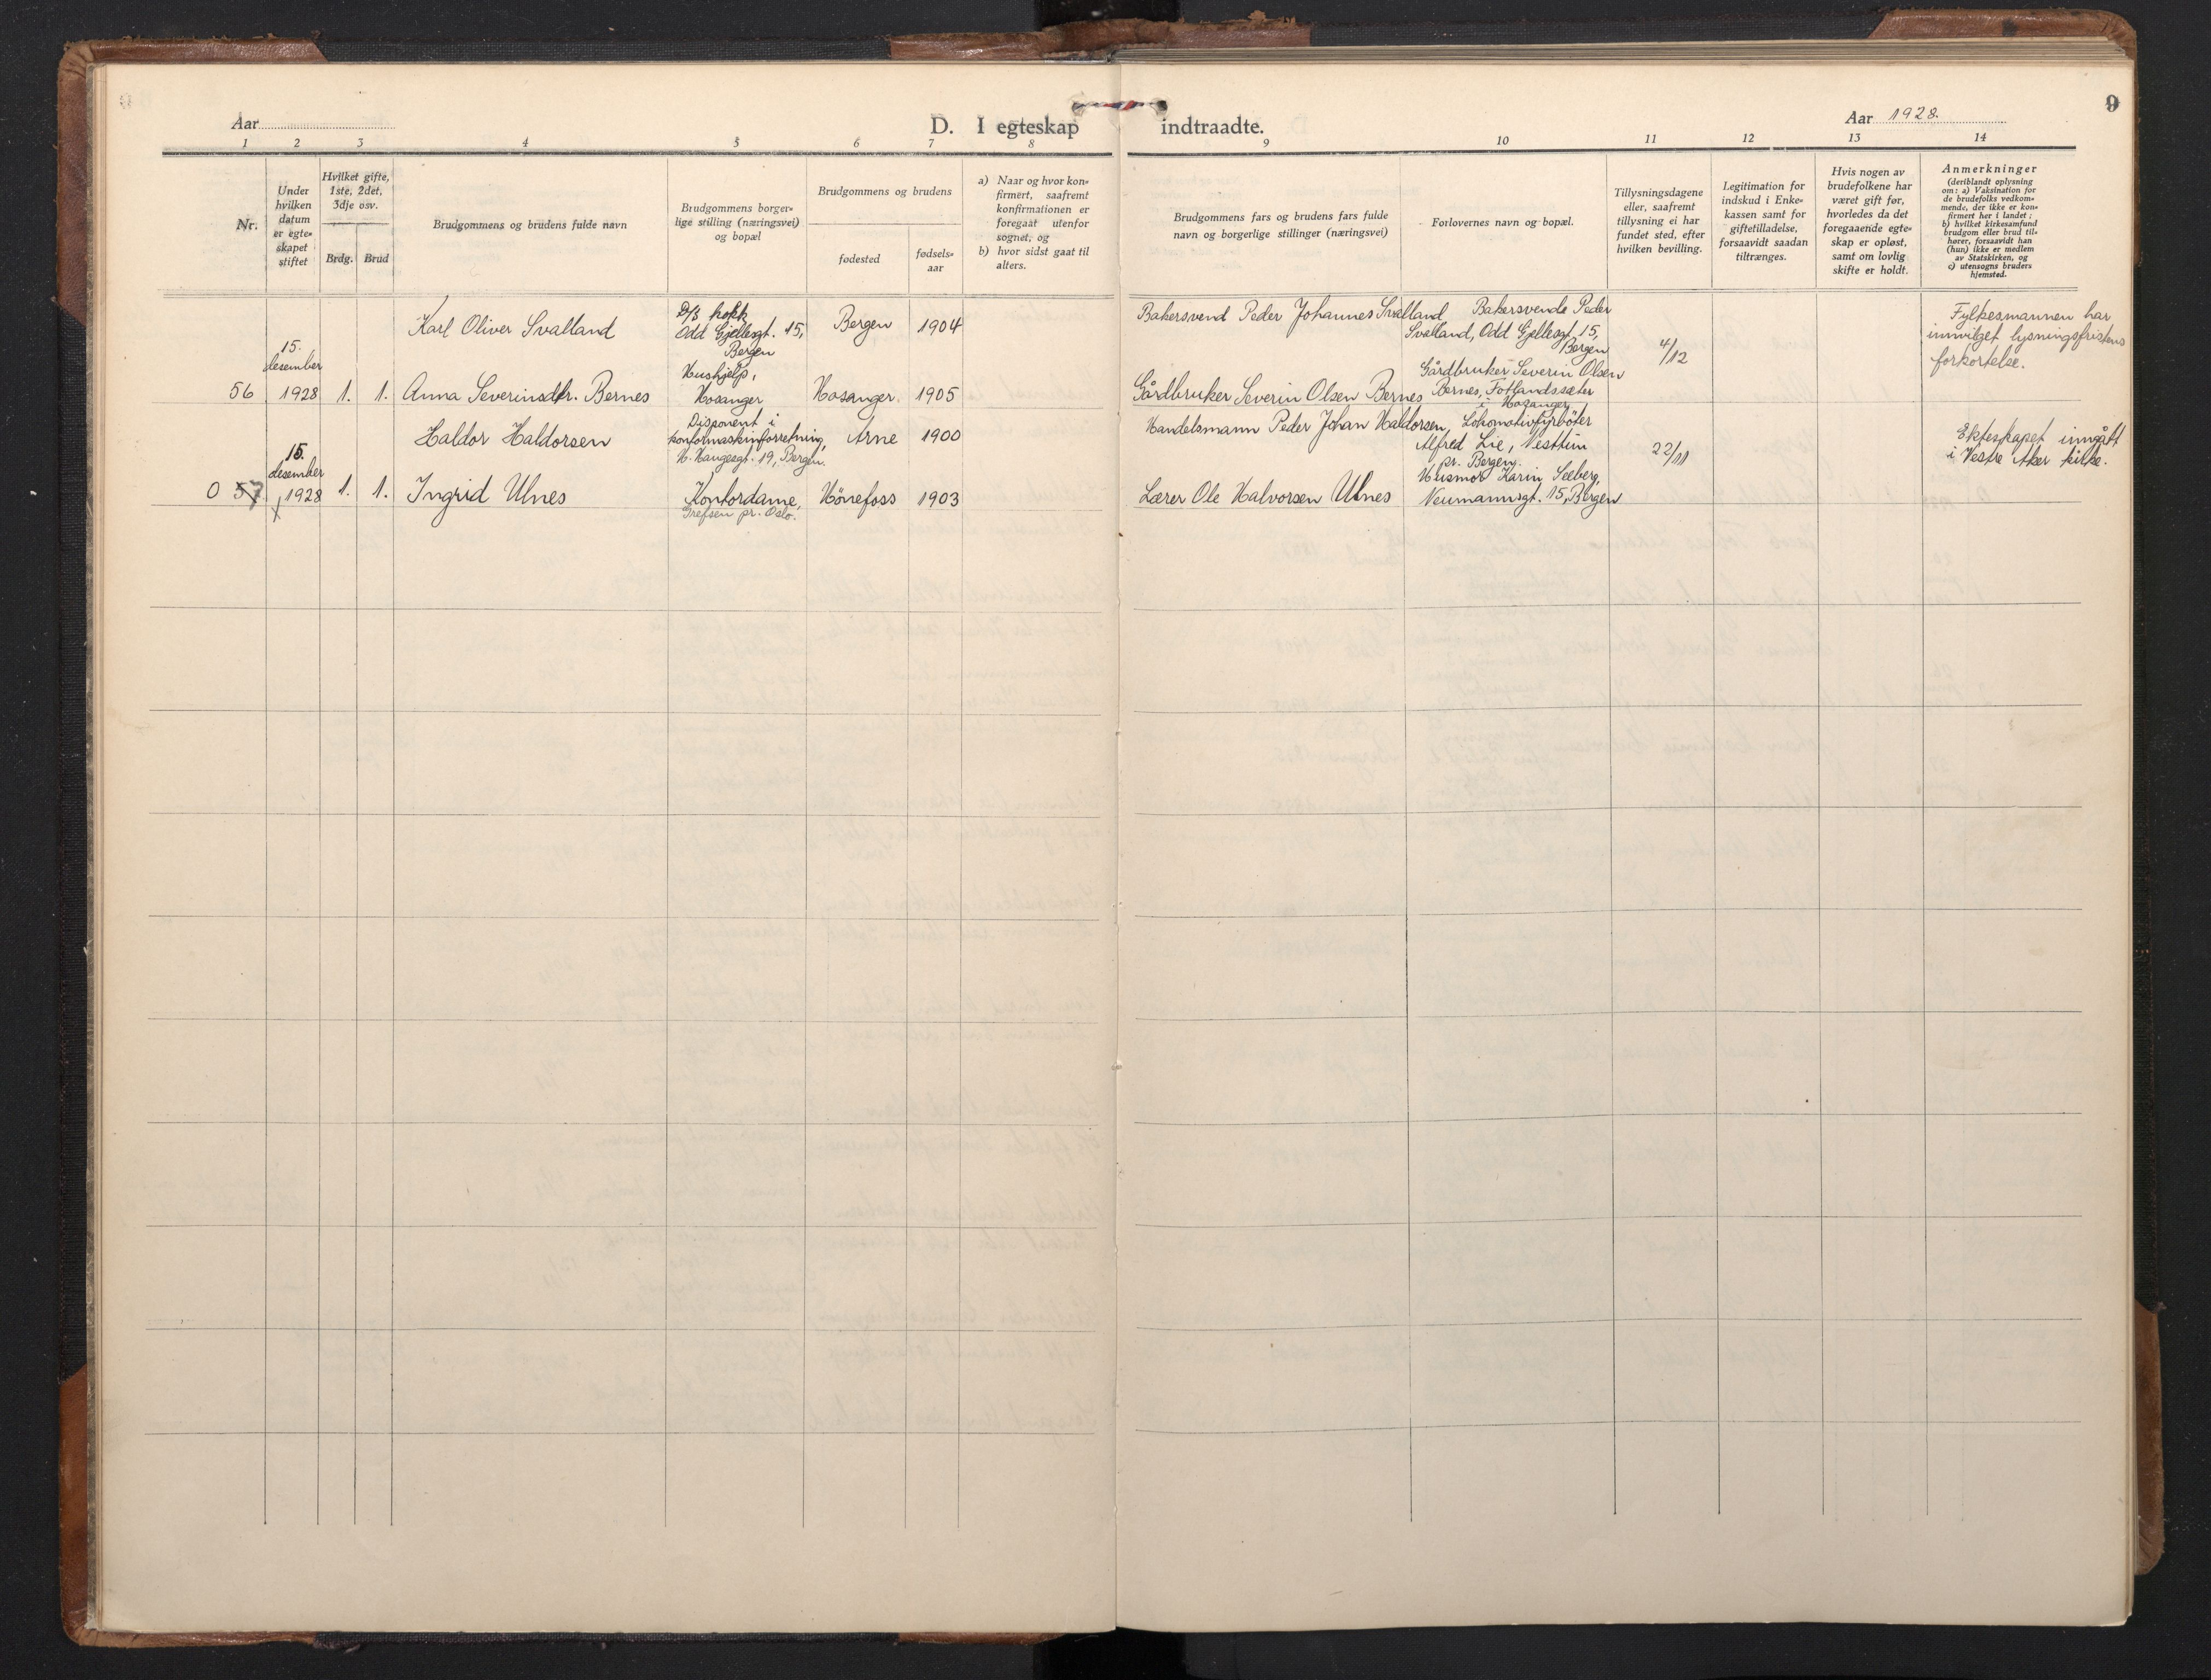 9
Aar
D. I egteskap indtraadte.
Aar 1928.
1 2 3 4 5 6 7 8 9 10 11 12 13 14
Nr.
Under
hvilken
datum
er egte-
skapet
stiftet
Hvilket gifte,
1ste, 2det,
3dje osv.
Brdg. Brud
Brudgommens og brudens fulde navn
Brudgommens borger-
lige stilling (næringsvei)
og bopæl
Brudgommens og brudens
fødested
fødsels-
aar
a) Naar og hvor kon-
firmert, saafremt
konfirmationen er
foregaat utenfor
sognet, og
b) hvor sidst gaat til
alters.
Brudgommens fars og brudens fars fulde
navn og borgerlige stillinger (næringsvei)
Forlovernes navn og bopæl.
Tillysningsdagene
eller, saafremt
tillysning ei har
fundet sted, efter
hvilken bevilling.
Legitimation for
indskud i Enke-
kassen samt for
giftetilladelse,
forsaavidt saadan
tiltrænges.
Hvis nogen av
brudefolkene har
været gift før,
hvorledes da det
foregaaende egte-
skap er opløst,
samt om lovlig
skifte er holdt.
Anmerkninger
(deriblandt oplysning
om: a) Vaksination for
de brudefolks vedkom-
mende, der ikke er kon-
firmert her i landet;
b) hvilket kirkesamfund
brudgom eller brud til-
hører, forsaavidt han
(hun) ikke er medlem
av Statskirken, og
c) utensogns bruders
hjemsted.
56
15.
desember
1928
1. 1.
Karl Oliver Svalland
D/S kokk
Odd Gjellesgt. 15,
Bergen
Bergen 1904
Bakersvend Peder Johannes Svalland
Bakersvende Peder
Svalland, Odd Gjellesgt. 15,
Bergen
4/12
Fylkesmannen har
innvilget lysningsfristens
forkortelse.
Anna Severinsdtr. Bernes
Hushjelp,
Hosanger
Hosanger 1905
Gårdbruker Severin Olsen Bernes
Gårdbruker Severin Olsen
Bernes, Fotlandssæter
i Hosanger
0 57
15.
desember
1928
1. 1.
Haldor Haldorsen
Disponent i
kontormaskinforretning,
H. Haugesgt. 19, Bergen.
Arne 1900
Handelsmann Peder Johan Haldorsen,
Lokomotivfyrböter
Alfred Lie, Nesttun
pr. Bergen.
22/11
Ekteskapet inngått
i Vestre Aker kirke.
Ingrid Ulnes
Kontordame,
Grefsen pr. Oslo.
Hönefoss 1903
Lærer Ole Halvorsen Ulnes
Husmor Karin Seeberg,
Neumannsgt. 15, Bergen